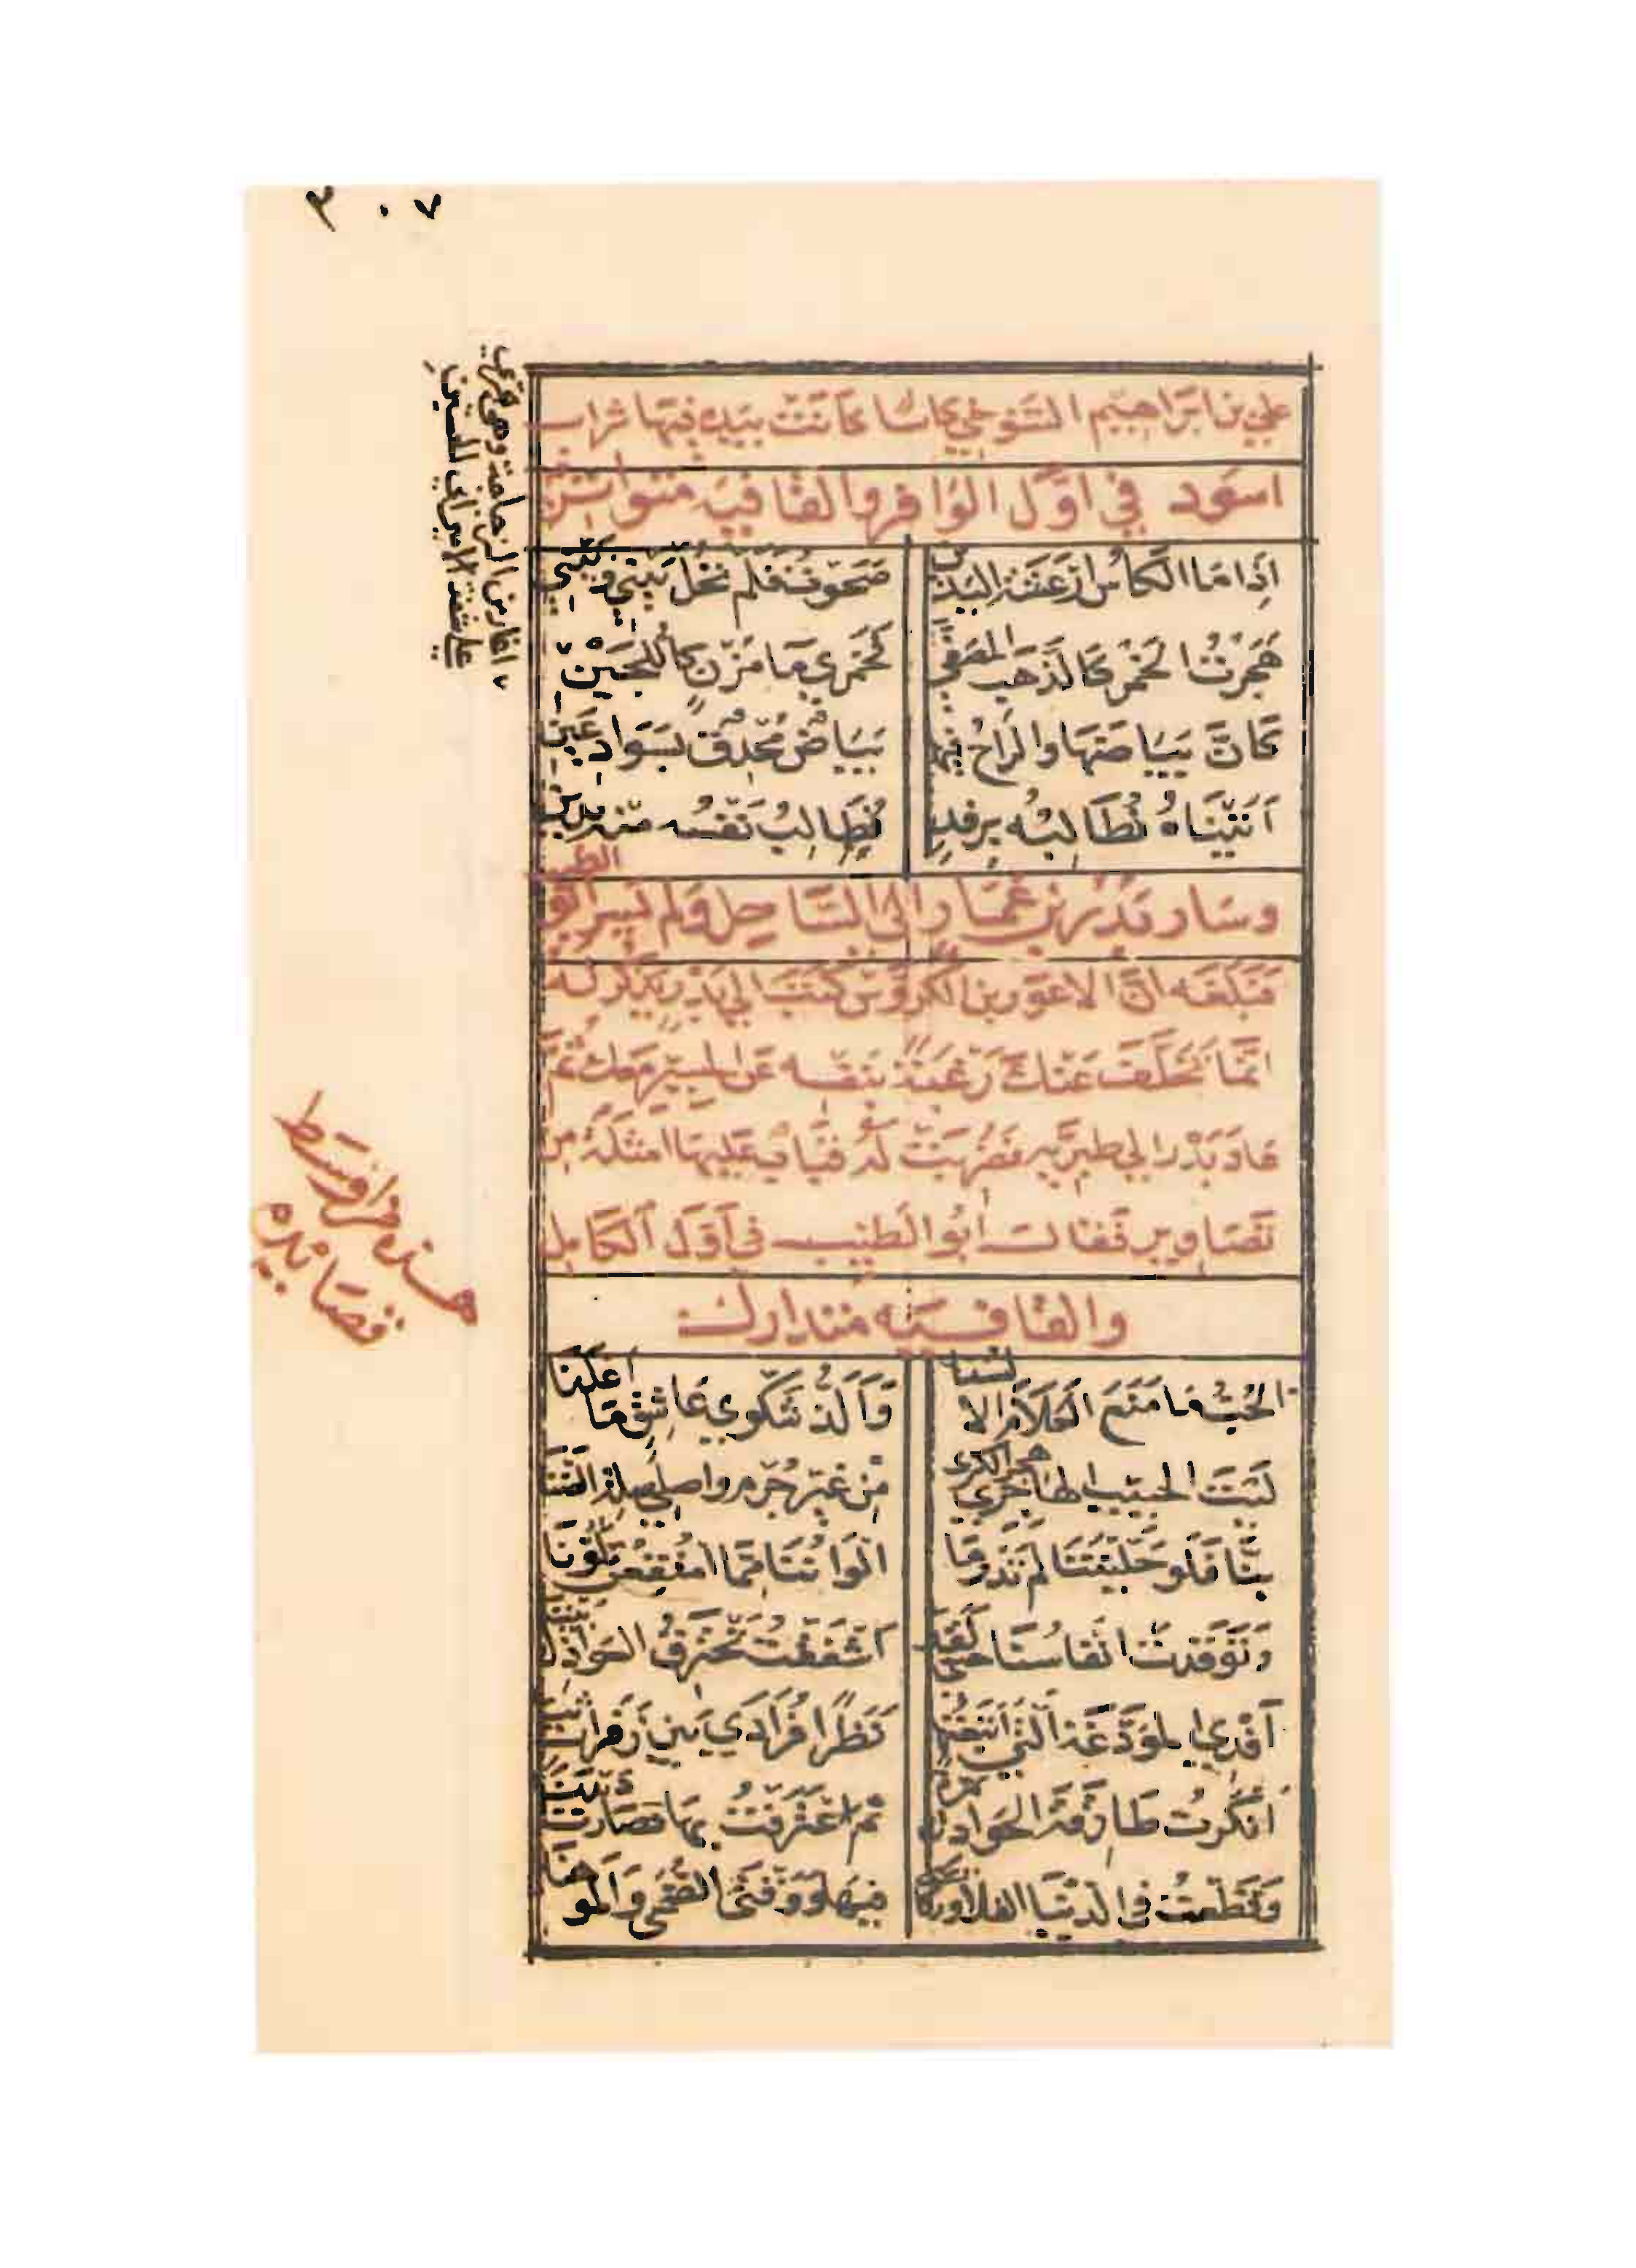 ٣٠٧
علي بن ابراهيم التنوخي كاسا كانت بيده فيها شراب
اسود في اوّل الوافر والقافيه متواتر
اذا ما الكاسُ ارعَشَت اليدين صَحَوتُ فلم تحُل بَيني وبَيني
هَجَرْتُ الخمرَ كالذهب المصفّى فخَمري مَا مُزنٍ كاللجَينِ
كانّ بَيَاضَها والراحُ فيها بَيَاضٌ مُحْدِقٌ بسَوادِ عَينِ
اَتَيْنَاهُ نُطالِبُه برفدٍ يُطالِبُ نَفسُه منه بدين
وسَار بَدْر بن عَمّار الى السّاحِل وَلم يَسِر ابو الطيب
فبَلغه انّ الاعور بن كروّس كتَبَ الي بَدر يَذكر لَه
انّما تخلّفَ عَنك رَغبَةً بنفسه عَن المسير مَعك ثم
عَادَ بَدْر الي طبريّه فضُربَتْ له قباب عليها امثلة من
تصَاوير فقالَ ابُو الطيب في اوّل الكامِل
والقافيه متدارك
الحُبُّ ما مَنَع الكلامَ الالسُنا وَالَذّ شكوي عاشقٍ ما اعْلَنا
لَيتَ الحبيب الهاجري هجر الكري مِن غير جُرم واصلي صلة الضنا
بِنّا فلو حَلّيْتَنا لم تَدر ما الوانُنا مما امتُقِعن تلوّنا
وتوقدت انفاسُنا حتى لقد اشفَقْتُ تحتَرقُ العَواذِل بيننا
اَفدي المودِّعَةَ التي اتبعتُها نَظرًا فُرادَي بَين زفرات ثنا
انكرْت طارقةَ الحَوادث مرّةً ثم اعتَرَفتُ بها فصَارت دَيدَنا
وقطَعتُ في الدنيا الفلا وركائبي فيها ووَقتيّ الضُحَى وَالموهنا